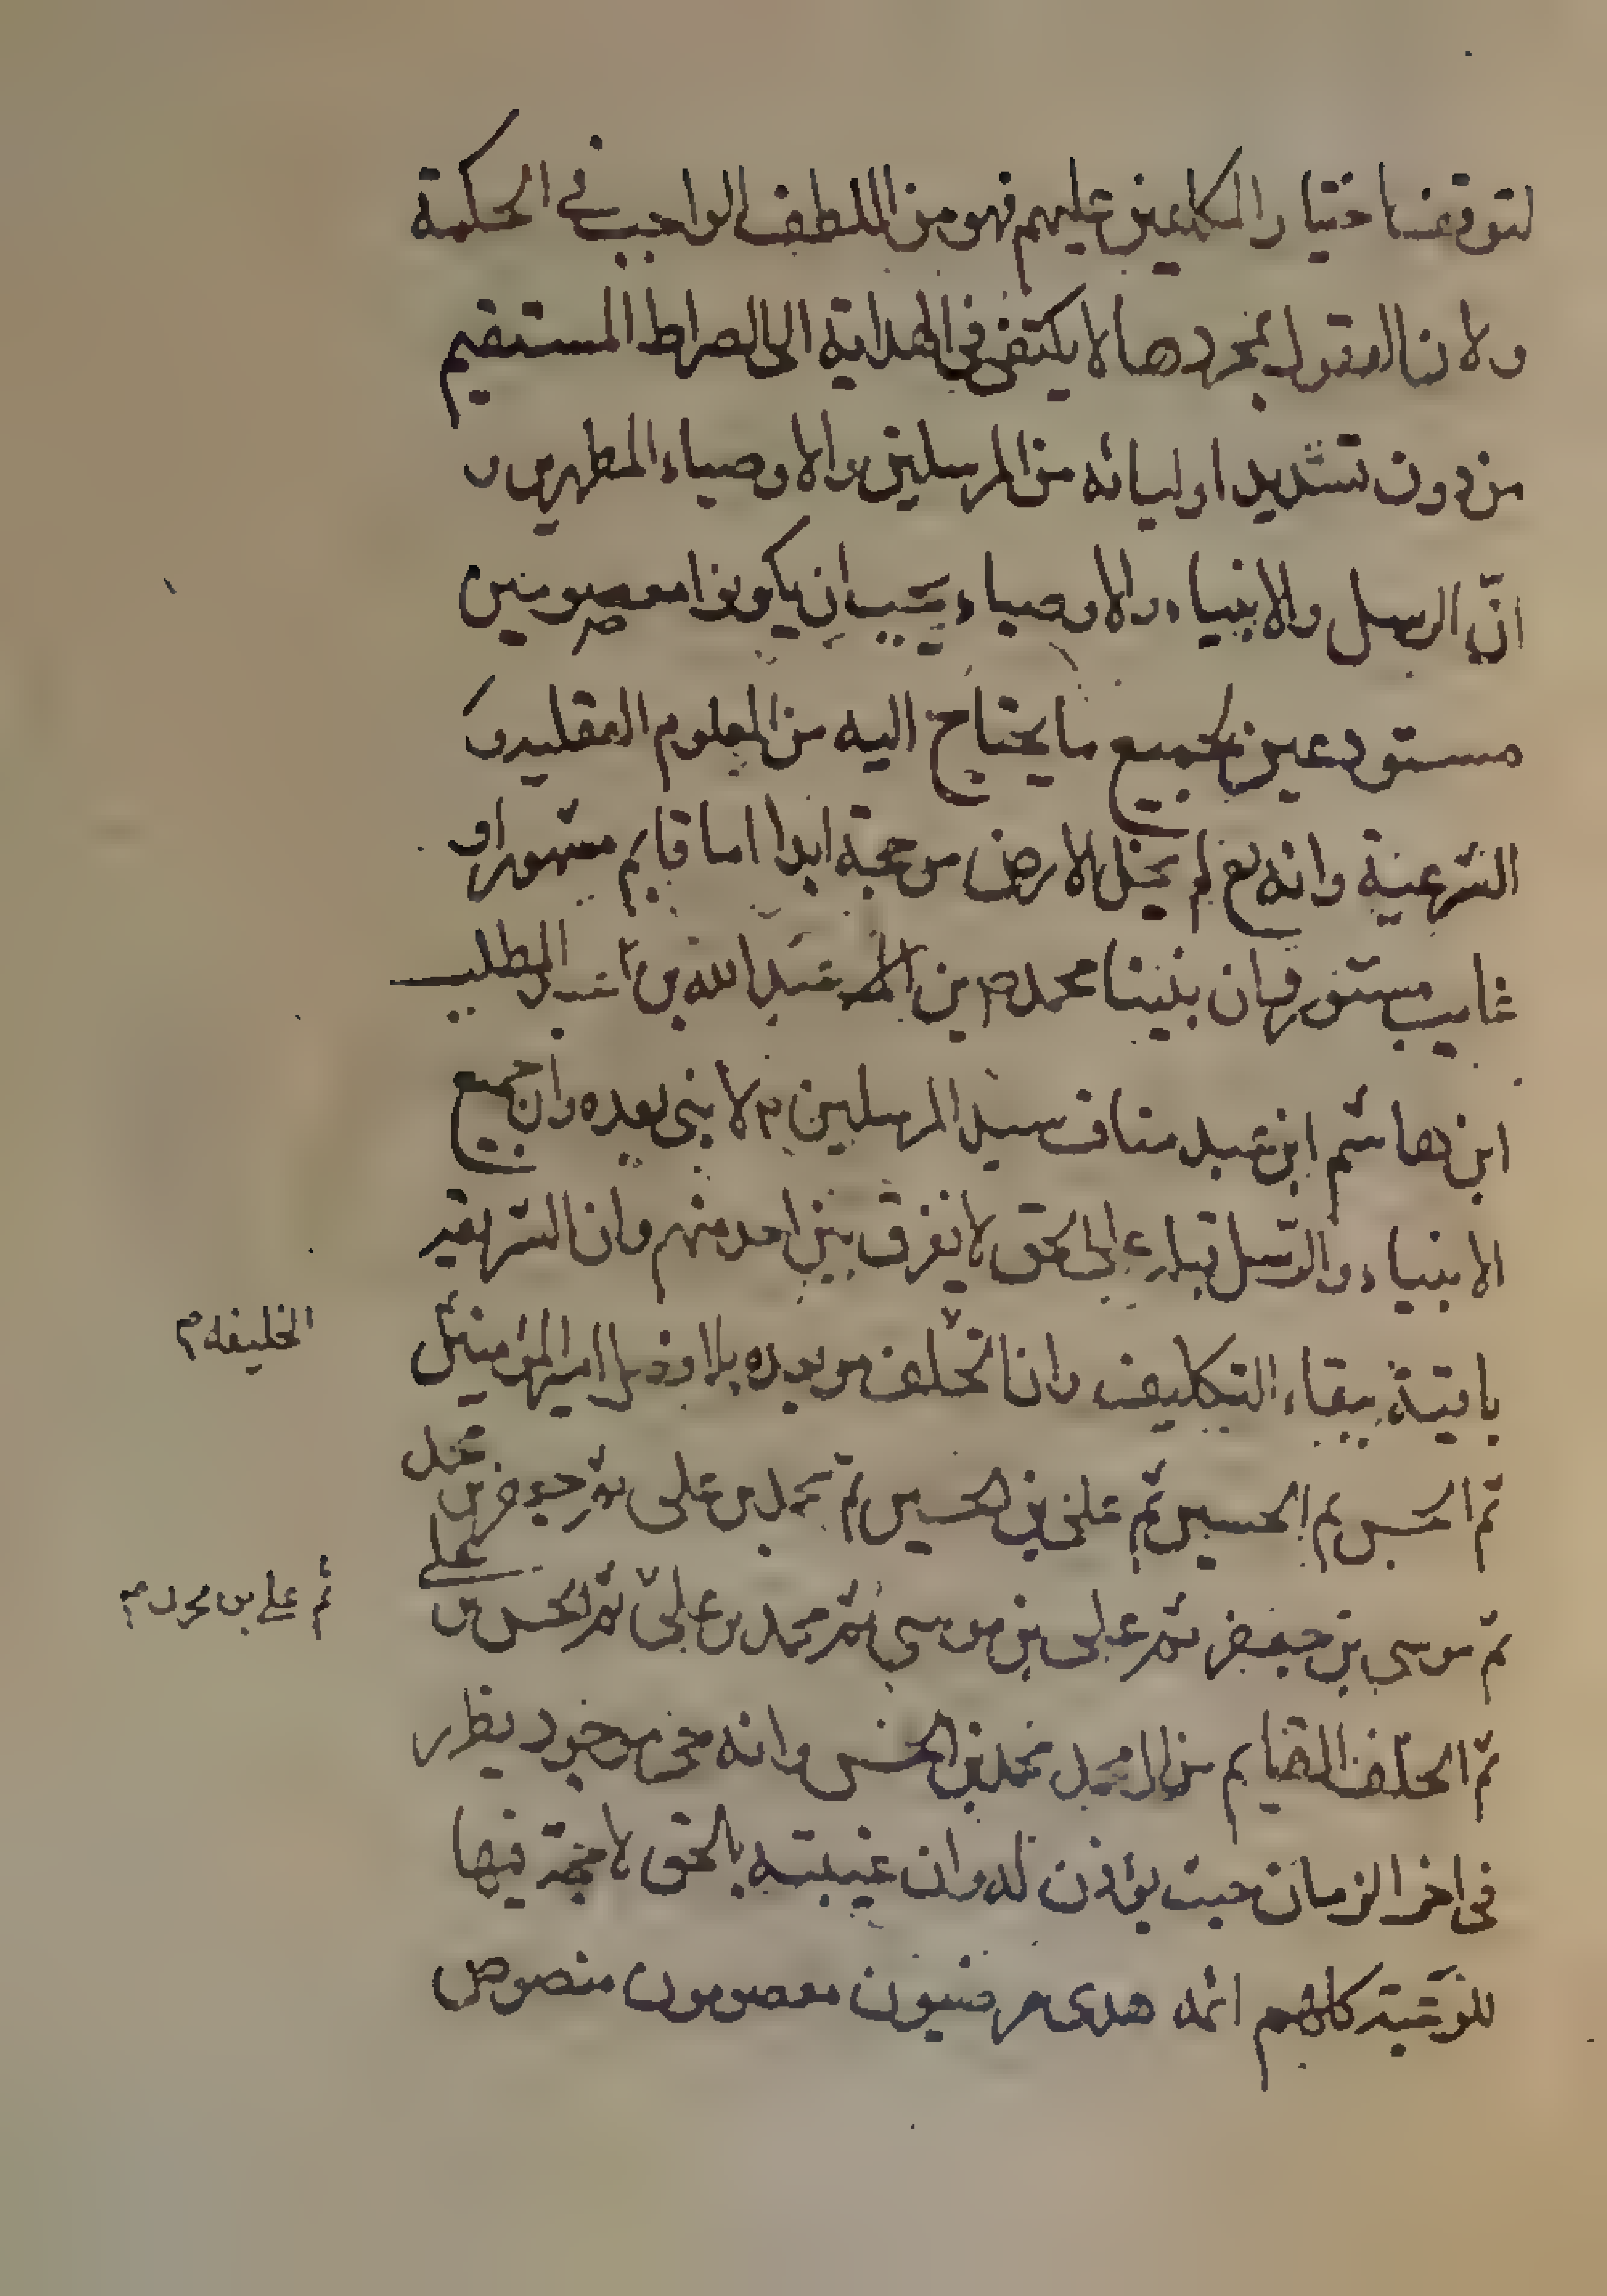 لتوقف اختيار المكلفين عليهم فهو من اللطف الواجب في الحكمة
ولان العقول بمجردها لا يكتفى في الهداية الى الصراط المستقيم
من دون تشديد اوليائه من المرسلين والاوصياء المطهرين و
انّ الرسل والانبياء والاوصياء يجب ان يكونوا معصومين
مستودعين لجميع ما يحتاج اليه من العلوم العقلية و
الشرعية وانه تع لم يخل الارض من حجة ابدا اما قايم مشهور او
غايب مستور وان نبينا محمد ص بن عبد الله بن عبد المطلب
ابن هاشم ابن عبد مناف سيد المرسلين لا نبى بعده وان جميع
الانبياء والرسل قبله على الحق لا نفرق بين احد منهم وان الشريعة
باقية ببقاء التكليف وان من بعده بلا فصل امير المؤمنين
الخليفه م
ثم الحسن ثم الحسين ثم على بن الحسين ثم محمد بن على ثم جعفر بن محمد
ثم موسى بن جعفر ثم على بن موسى ثم محمد بن علىّ ثم الحسن بن على
ثم على بن محمد م
ثم الخلف القايم من ال محمد محمد بن الحسن وانه حى موجود يظهر
فى اخر الزمان حيث يؤذن له وان غيبته بالحق لا حجة فيها
للرعية كلهم ائمه هدى مرضيون معصومون منصوص